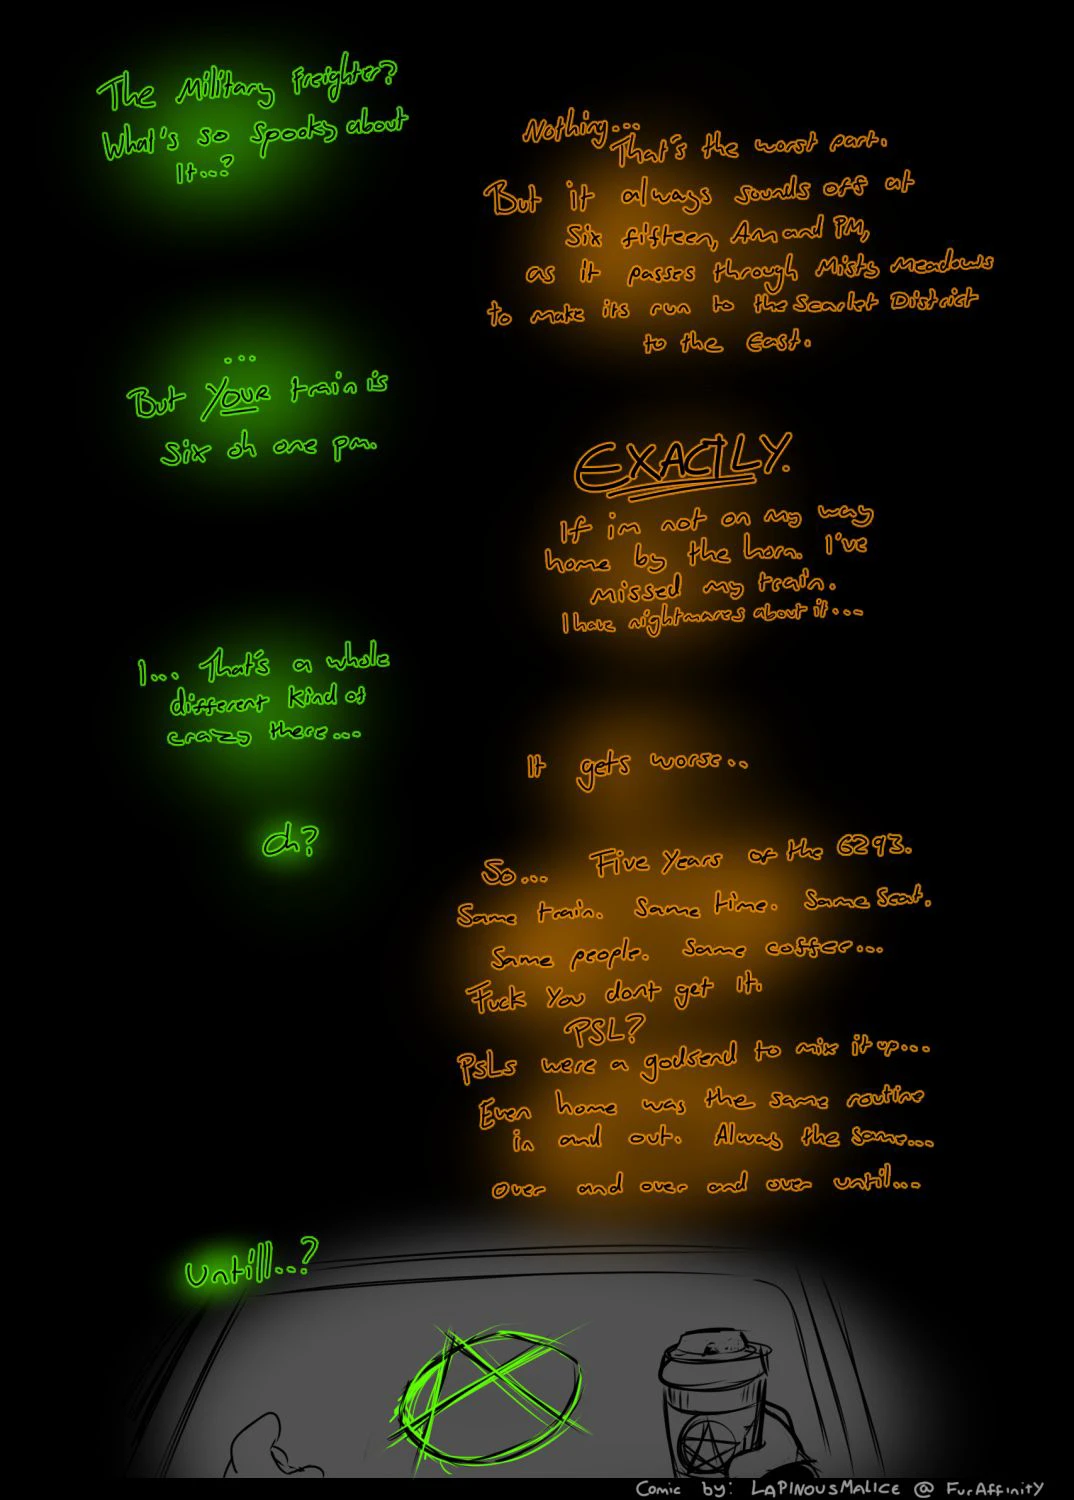 The Military Freighter?
What's so spooky about
It...?
Nothing...
That's the worst part.
But it always sounds off at
Six fifteen, Am and PM,
as it passes through Misty Meadows
to make its run to the Scarlet District
to the East.
...
But YOUR train is
six oh one pm.
EXACTLY.
If im not on my way
home by the horn. I've
missed my train.
I have nightmares about it...
I... That's a whole
different kind of
crazy there...
It gets worse..
Oh?
So... Five Years of the 6293.
Same train. Same time. Same Seat.
Same people. Same coffee...
Fuck You dont get it.
PSL?
PSLs were a godsend to mix it up...
Even home was the same routine
in and out. Always the same...
over and over and over until...
Untill..?
Comic by: LAPINOUSMALICE @ FurAffinity